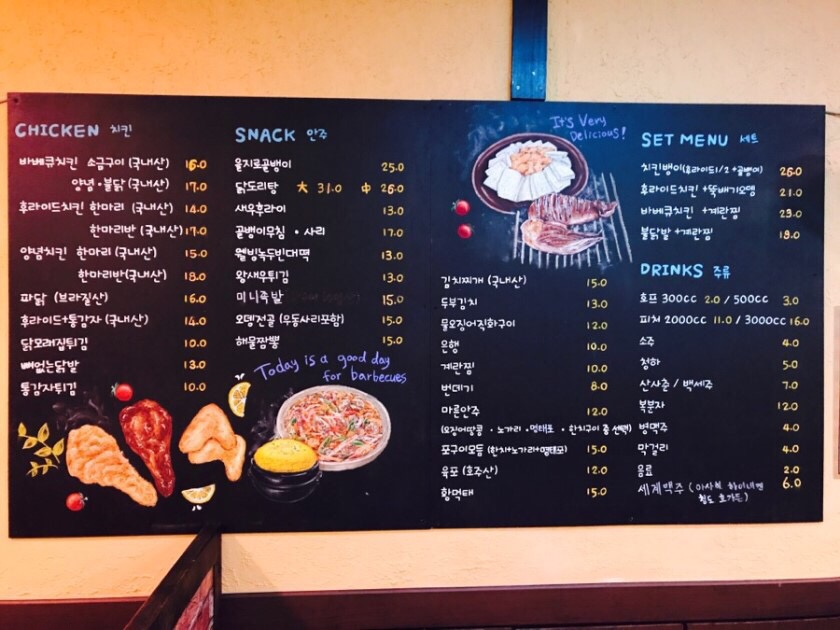 CHICKEN 치킨
바베큐치킨 소금구이 (국내산) 16.0
양념·불닭 (국내산) 17.0
후라이드치킨 한마리 (국내산) 14.0
한마리반 (국내산) 17.0
양념치킨 한마리 (국내산) 15.0
한마리반(국내산) 18.0
파닭 (브라질산) 16.0
후라이드+통감자 (국내산) 14.0
닭모래집튀김 10.0
뼈없는닭발 13.0
통감자튀김 10.0
SNACK 안주
을지로골뱅이 25.0
닭도리탕 大 31.0 中 26.0
새우후라이 13.0
골뱅이무침·사리 17.0
웰빙녹두빈대떡 13.0
왕새우튀김 13.0
미니족발 15.0
오뎅전골 (우동사리포함) 15.0
해물짬뽕 15.0
Today is a good day
for barbecues
It's Very
Delicious!
김치찌개 (국내산) 15.0
두부김치 13.0
물오징어직화구이 12.0
은행 10.0
계란찜 10.0
번데기 8.0
마른안주 12.0
(오징어땅콩·노가리·명태포·한치구이 중 선택)
포구이모듬 (한치+노가리+명태포) 15.0
육포 (호주산) 12.0
황먹태 15.0
SET MENU 세트
치킨뱅이(후라이드1/2+골뱅이) 26.0
후라이드치킨+뚝배기오뎅 21.0
바베큐치킨 +계란찜 23.0
불닭발 +계란찜 18.0
DRINKS 주류
호프 300cc 2.0 / 500cc 3.0
피쳐 2000cc 11.0 / 3000cc 16.0
소주 4.0
청하 5.0
산사춘 / 백세주 7.0
복분자 12.0
병맥주 4.0
막걸리 4.0
음료 2.0
세계맥주 (아사히 하이네켄 6.0
칭도 호가든)